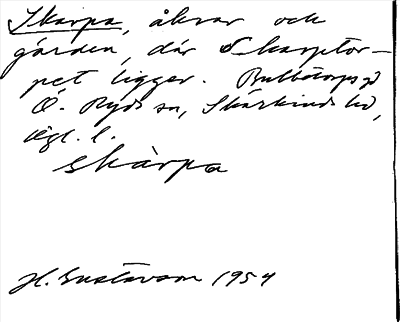 Skarpa, åkrar och
gärden, där Skarptor-
pet ligger. Bullstorps gd
Ö. Ryds sn, Skärkinds hd,
Ögl. l.
skàrpa
H. Gustavson 1954